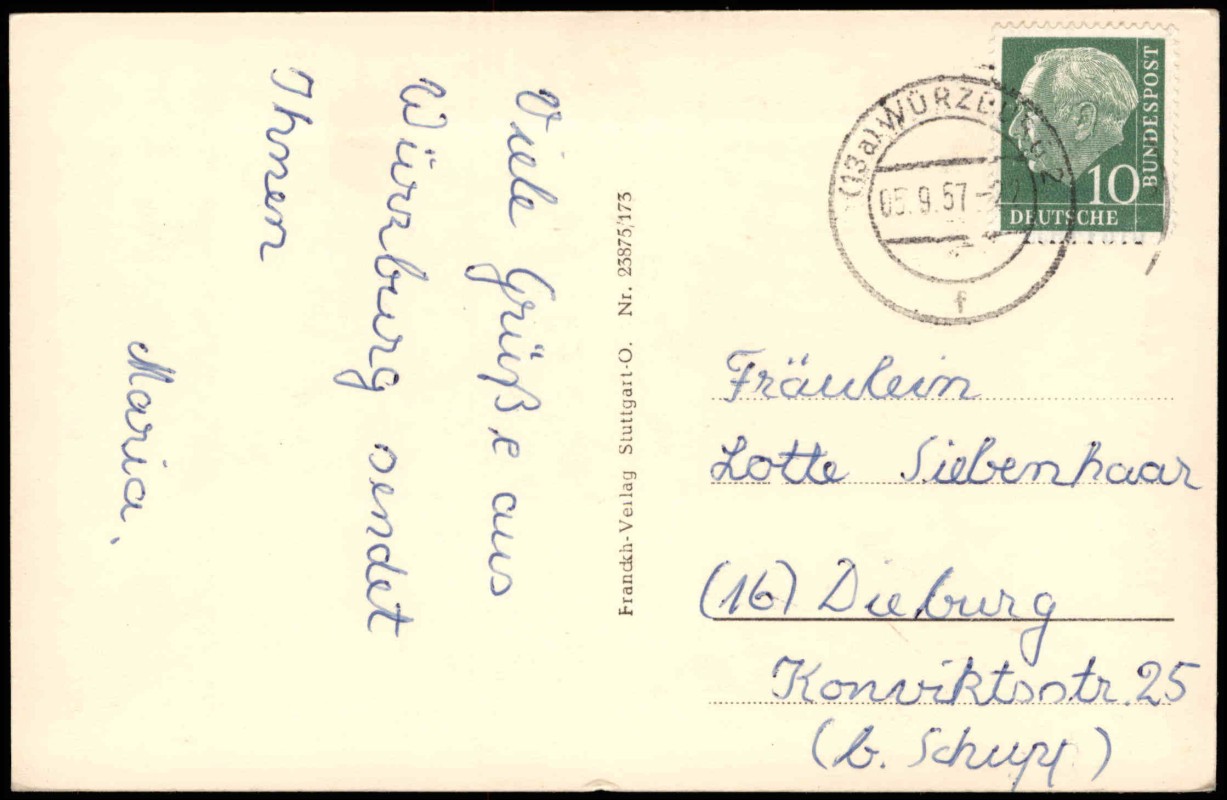 Viele Grüße aus
Würzburg sendet
Ihnen
Maria.
Franckh-Verlag Stuttgart-O. Nr. 23875/173
(13a) WÜRZBURG 2
05.9.57
f
10
DEUTSCHE
BUNDESPOST
Fräulein
Lotte Siebenhaar
(16) Dieburg
Konviktsstr. 25
(b. Schupp)